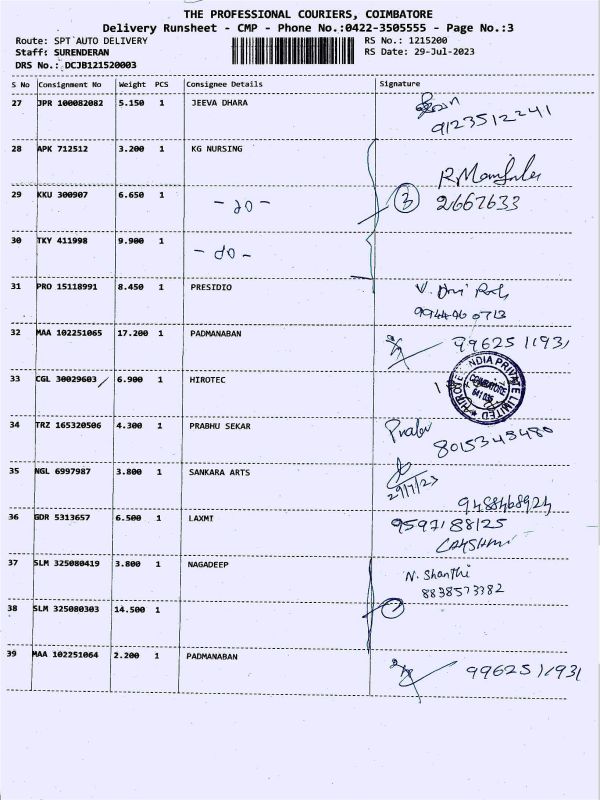 THE PROFESSIONAL COURIERS, COIMBATORE
Delivery Runsheet - CMP - Phone No.:0422-3505555 - Page No.:3
Route: SPT AUTO DELIVERY
RS No.: 1215200
Staff: SURENDERAN
RS Date: 29-Jul-2023
DRS No.: DCJB121520003
S No Consignment No Weight PCS Consignee Details Signature
27 JPR 100082082 5.150 1 JEEVA DHARA
9123512241
28 APK 712512 3.200 1 KG NURSING
29 KKU 300907 6.650 1 - do - 3 2667633
30 TKY 411998 9.900 1 - do -
31 PRO 15118991 8.450 1 PRESIDIO
9944960713
32 MAA 102251065 17.200 1 PADMANABAN 9962511931
33 CGL 30029603 6.900 1 HIROTEC
HIROTEC INDIA PRIVATE LIMITED
COIMBATORE
34 TRZ 165320506 4.300 1 PRABHU SEKAR Prabu
8015345480
35 NGL 6997987 3.800 1 SANKARA ARTS
29/7/23
9488468924
36 GDR 5313657 6.500 1 LAXMI 9597188125
37 SLM 325080419 3.800 1 NAGADEEP N. Shanthi
8838573782
38 SLM 325080303 14.500 1
39 MAA 102251064 2.200 1 PADMANABAN 9962511931